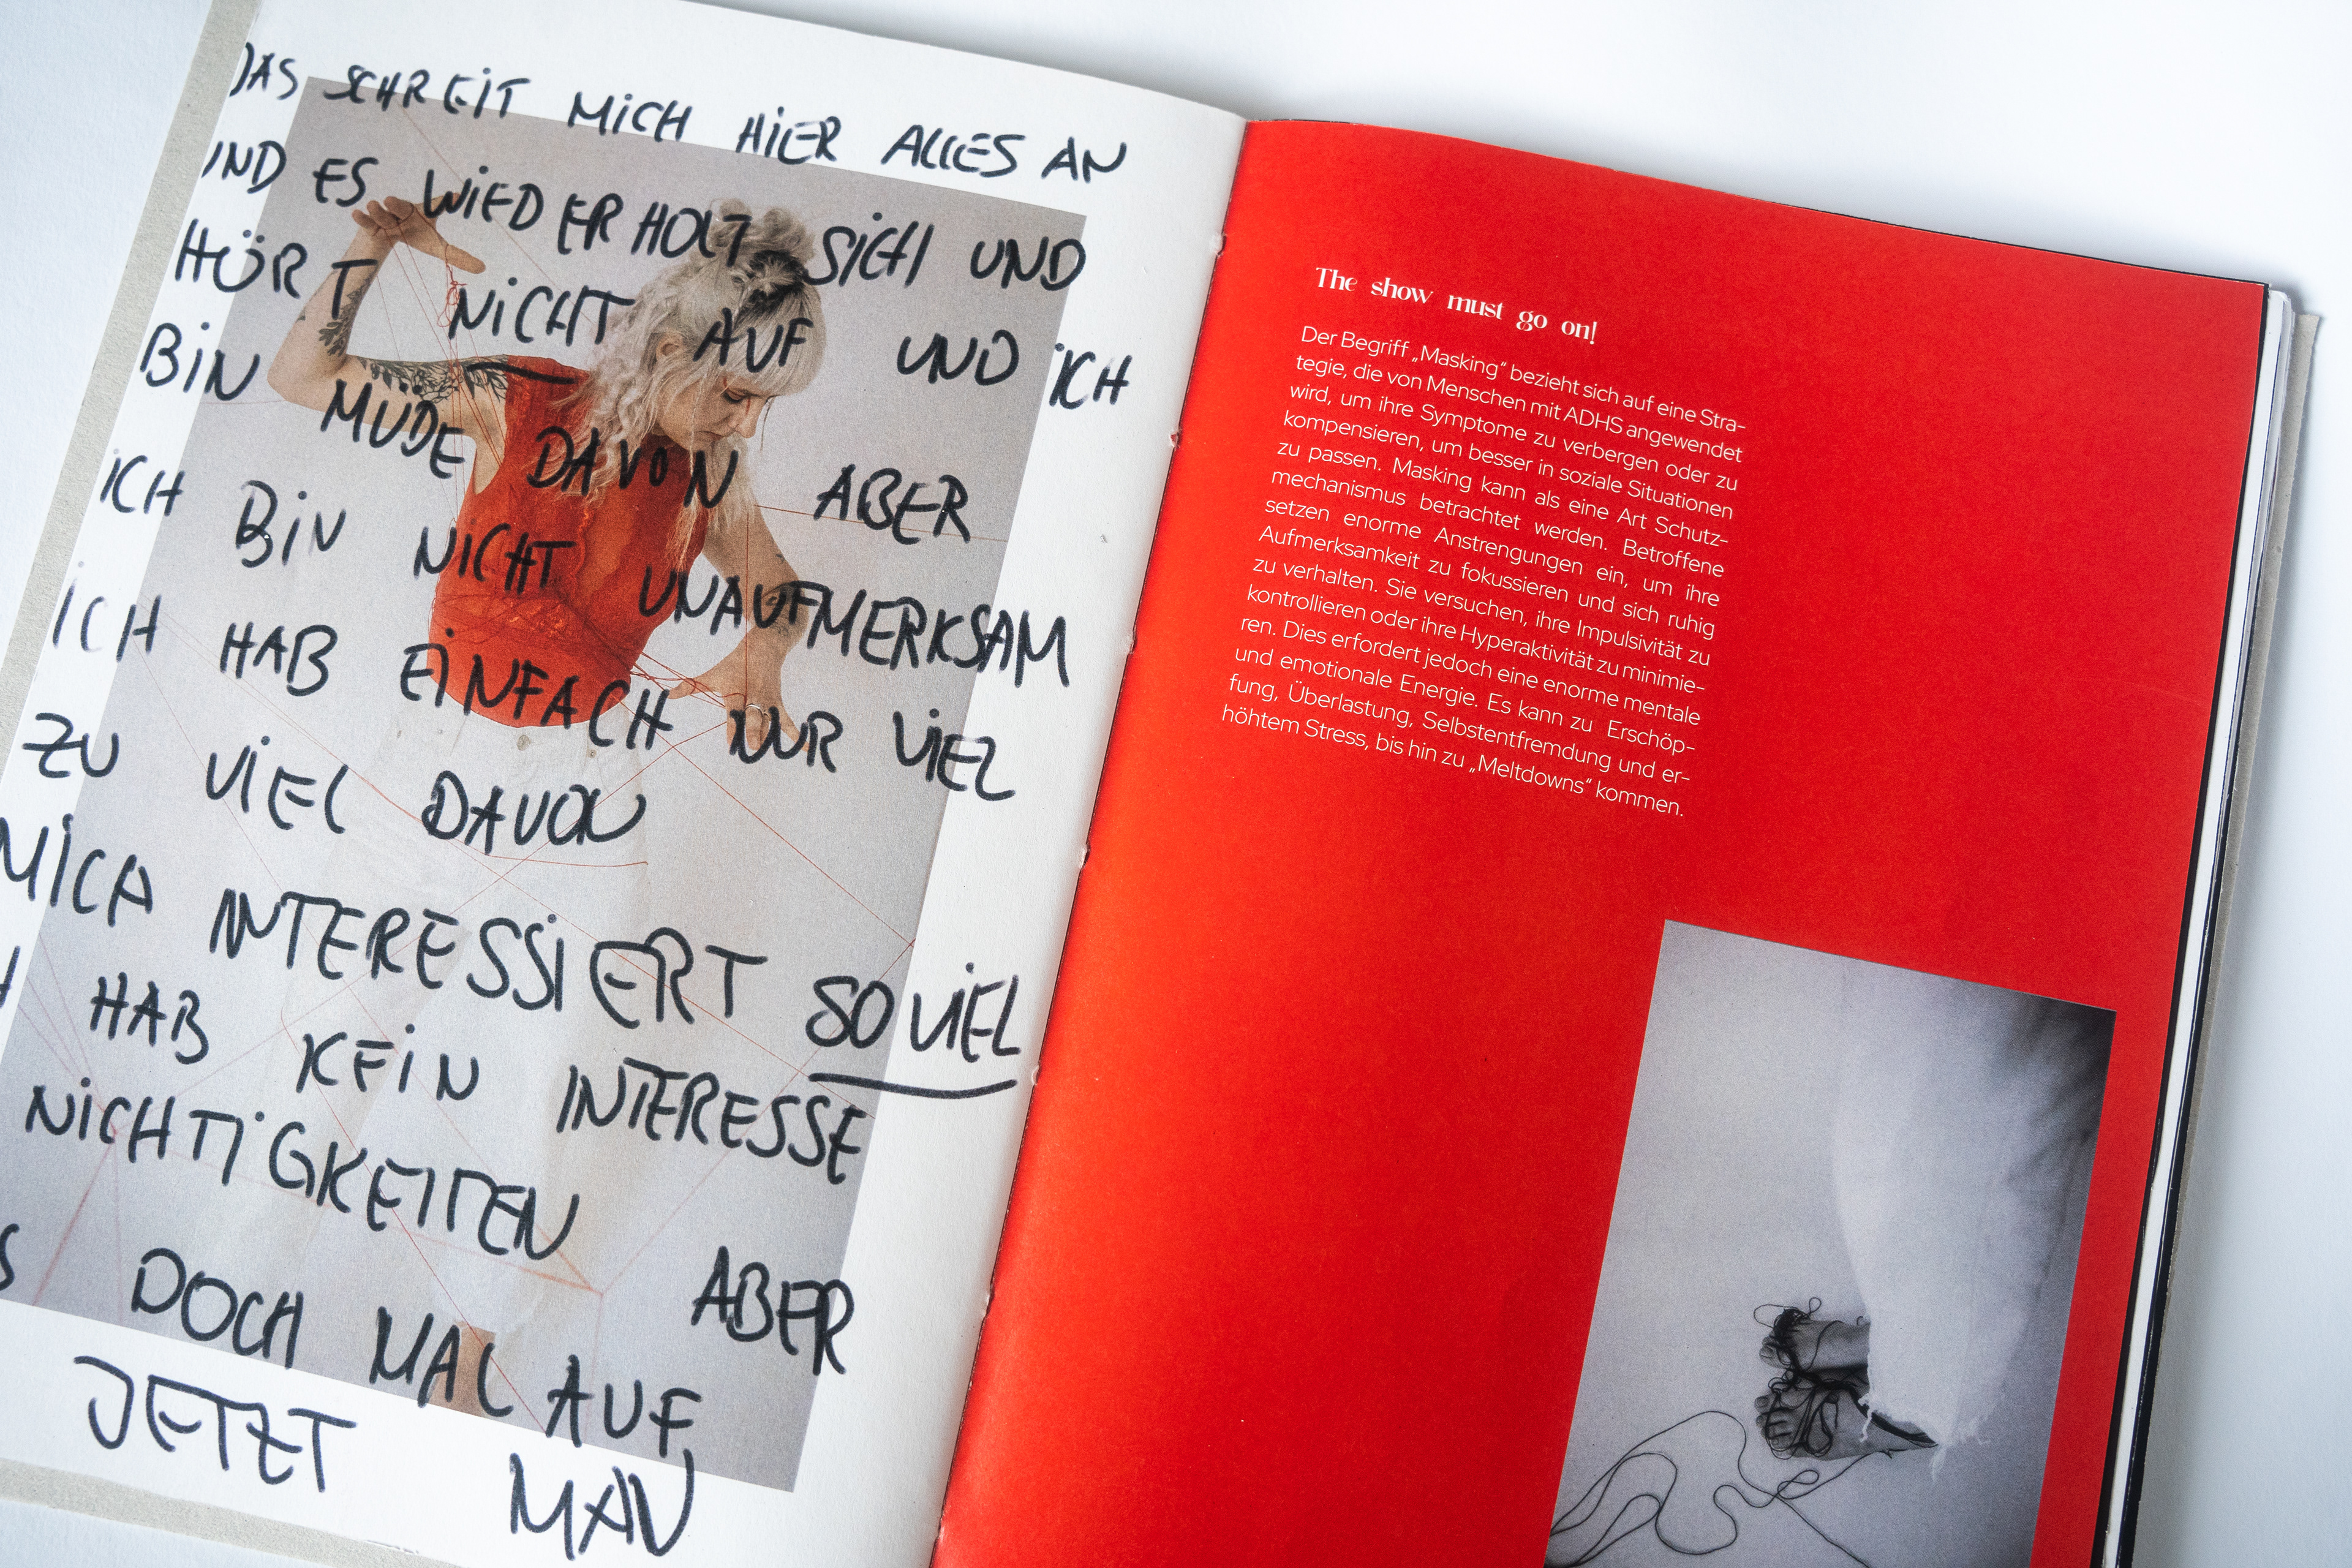 DAS SCHREIT MICH HIER ALLES AN
UND ES WIEDERHOLT SICH UND
HÖRT NICHT AUF UND ICH
BIN MÜDE DAVON ABER
ICH BIN NICHT UNAUFMERKSAM
ICH HAB EINFACH NUR VIEL
ZU VIEL DAVON
MICH INTERESSIERT SO VIEL
HAB KEIN INTERESSE
NICHTIGKEITEN
ABER
DOCH MAL AUF
JETZT MAN
The show must go on!
Der Begriff „Masking“ bezieht sich auf eine Stra-
tegie, die von Menschen mit ADHS angewendet
wird, um ihre Symptome zu verbergen oder zu
kompensieren, um besser in soziale Situationen
zu passen. Masking kann als eine Art Schutz-
mechanismus betrachtet werden. Betroffene
setzen enorme Anstrengungen ein, um ihre
Aufmerksamkeit zu fokussieren und sich ruhig
zu verhalten. Sie versuchen, ihre Impulsivität zu
kontrollieren oder ihre Hyperaktivität zu minimie-
ren. Dies erfordert jedoch eine enorme mentale
und emotionale Energie. Es kann zu Erschöp-
fung, Überlastung, Selbstentfremdung und er-
höhtem Stress, bis hin zu „Meltdowns“ kommen.